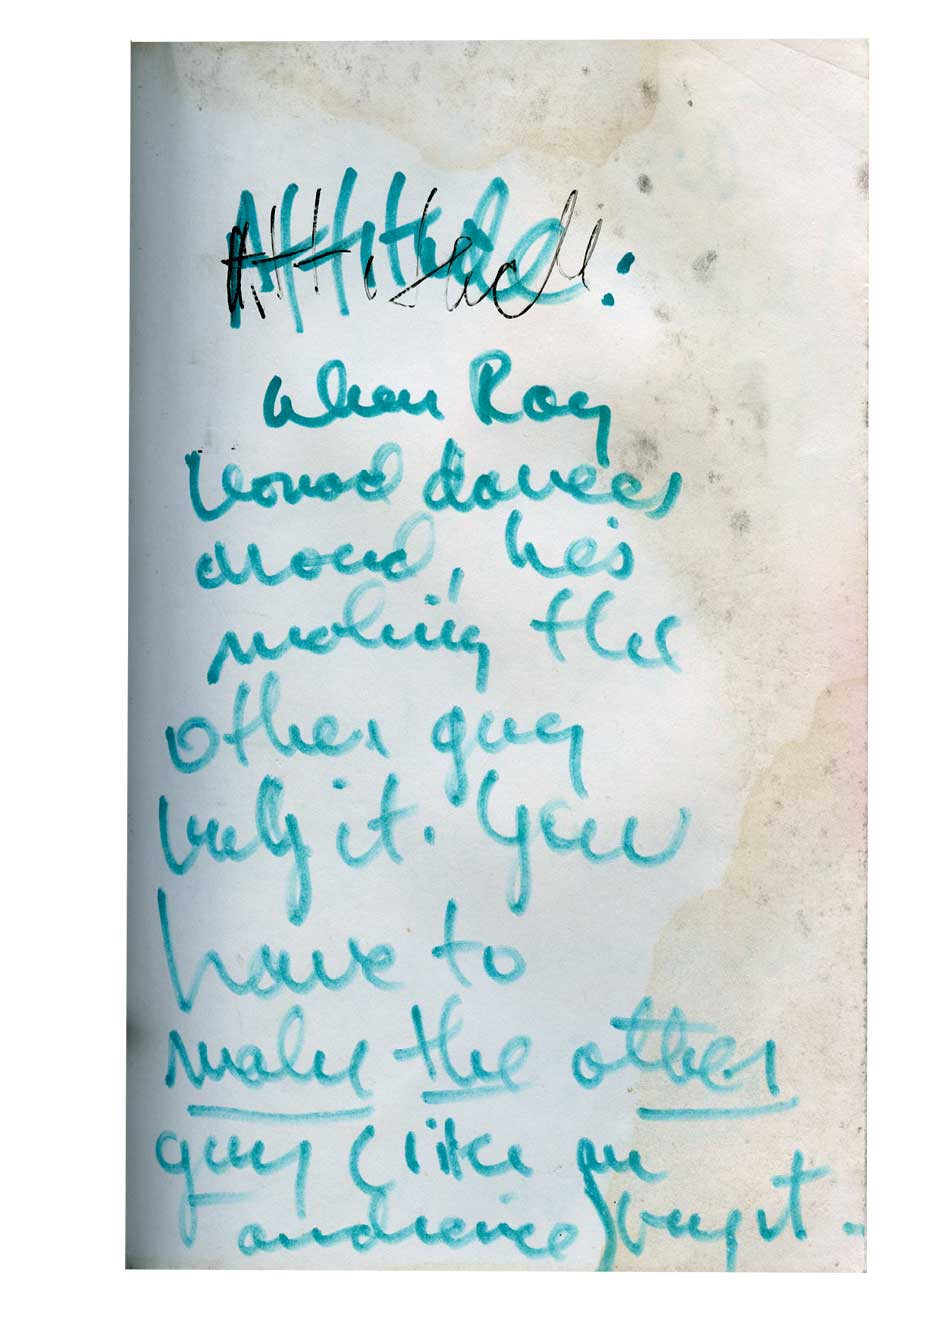 Attitude:
When Ray
Leonard dances
around, he's
making the
other guy
buy it. You
have to
make the other
guy (like an
audience) buy it.